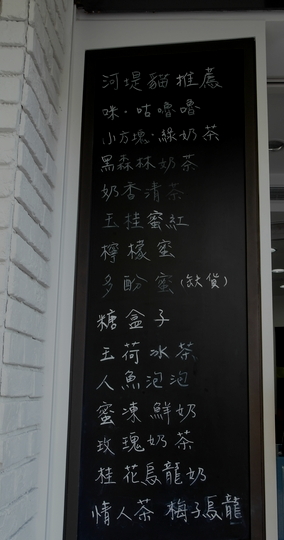 河堤貓推薦
咪·咕嚕嚕
小方塊·綠奶茶
黑森林奶茶
奶香清茶
玉桂蜜紅
檸檬蜜
多酚蜜(缺貨)
糖盒子
玉荷冰茶
人魚泡泡
蜜凍鮮奶
玫瑰奶茶
桂花烏龍奶
情人茶 梅子烏龍